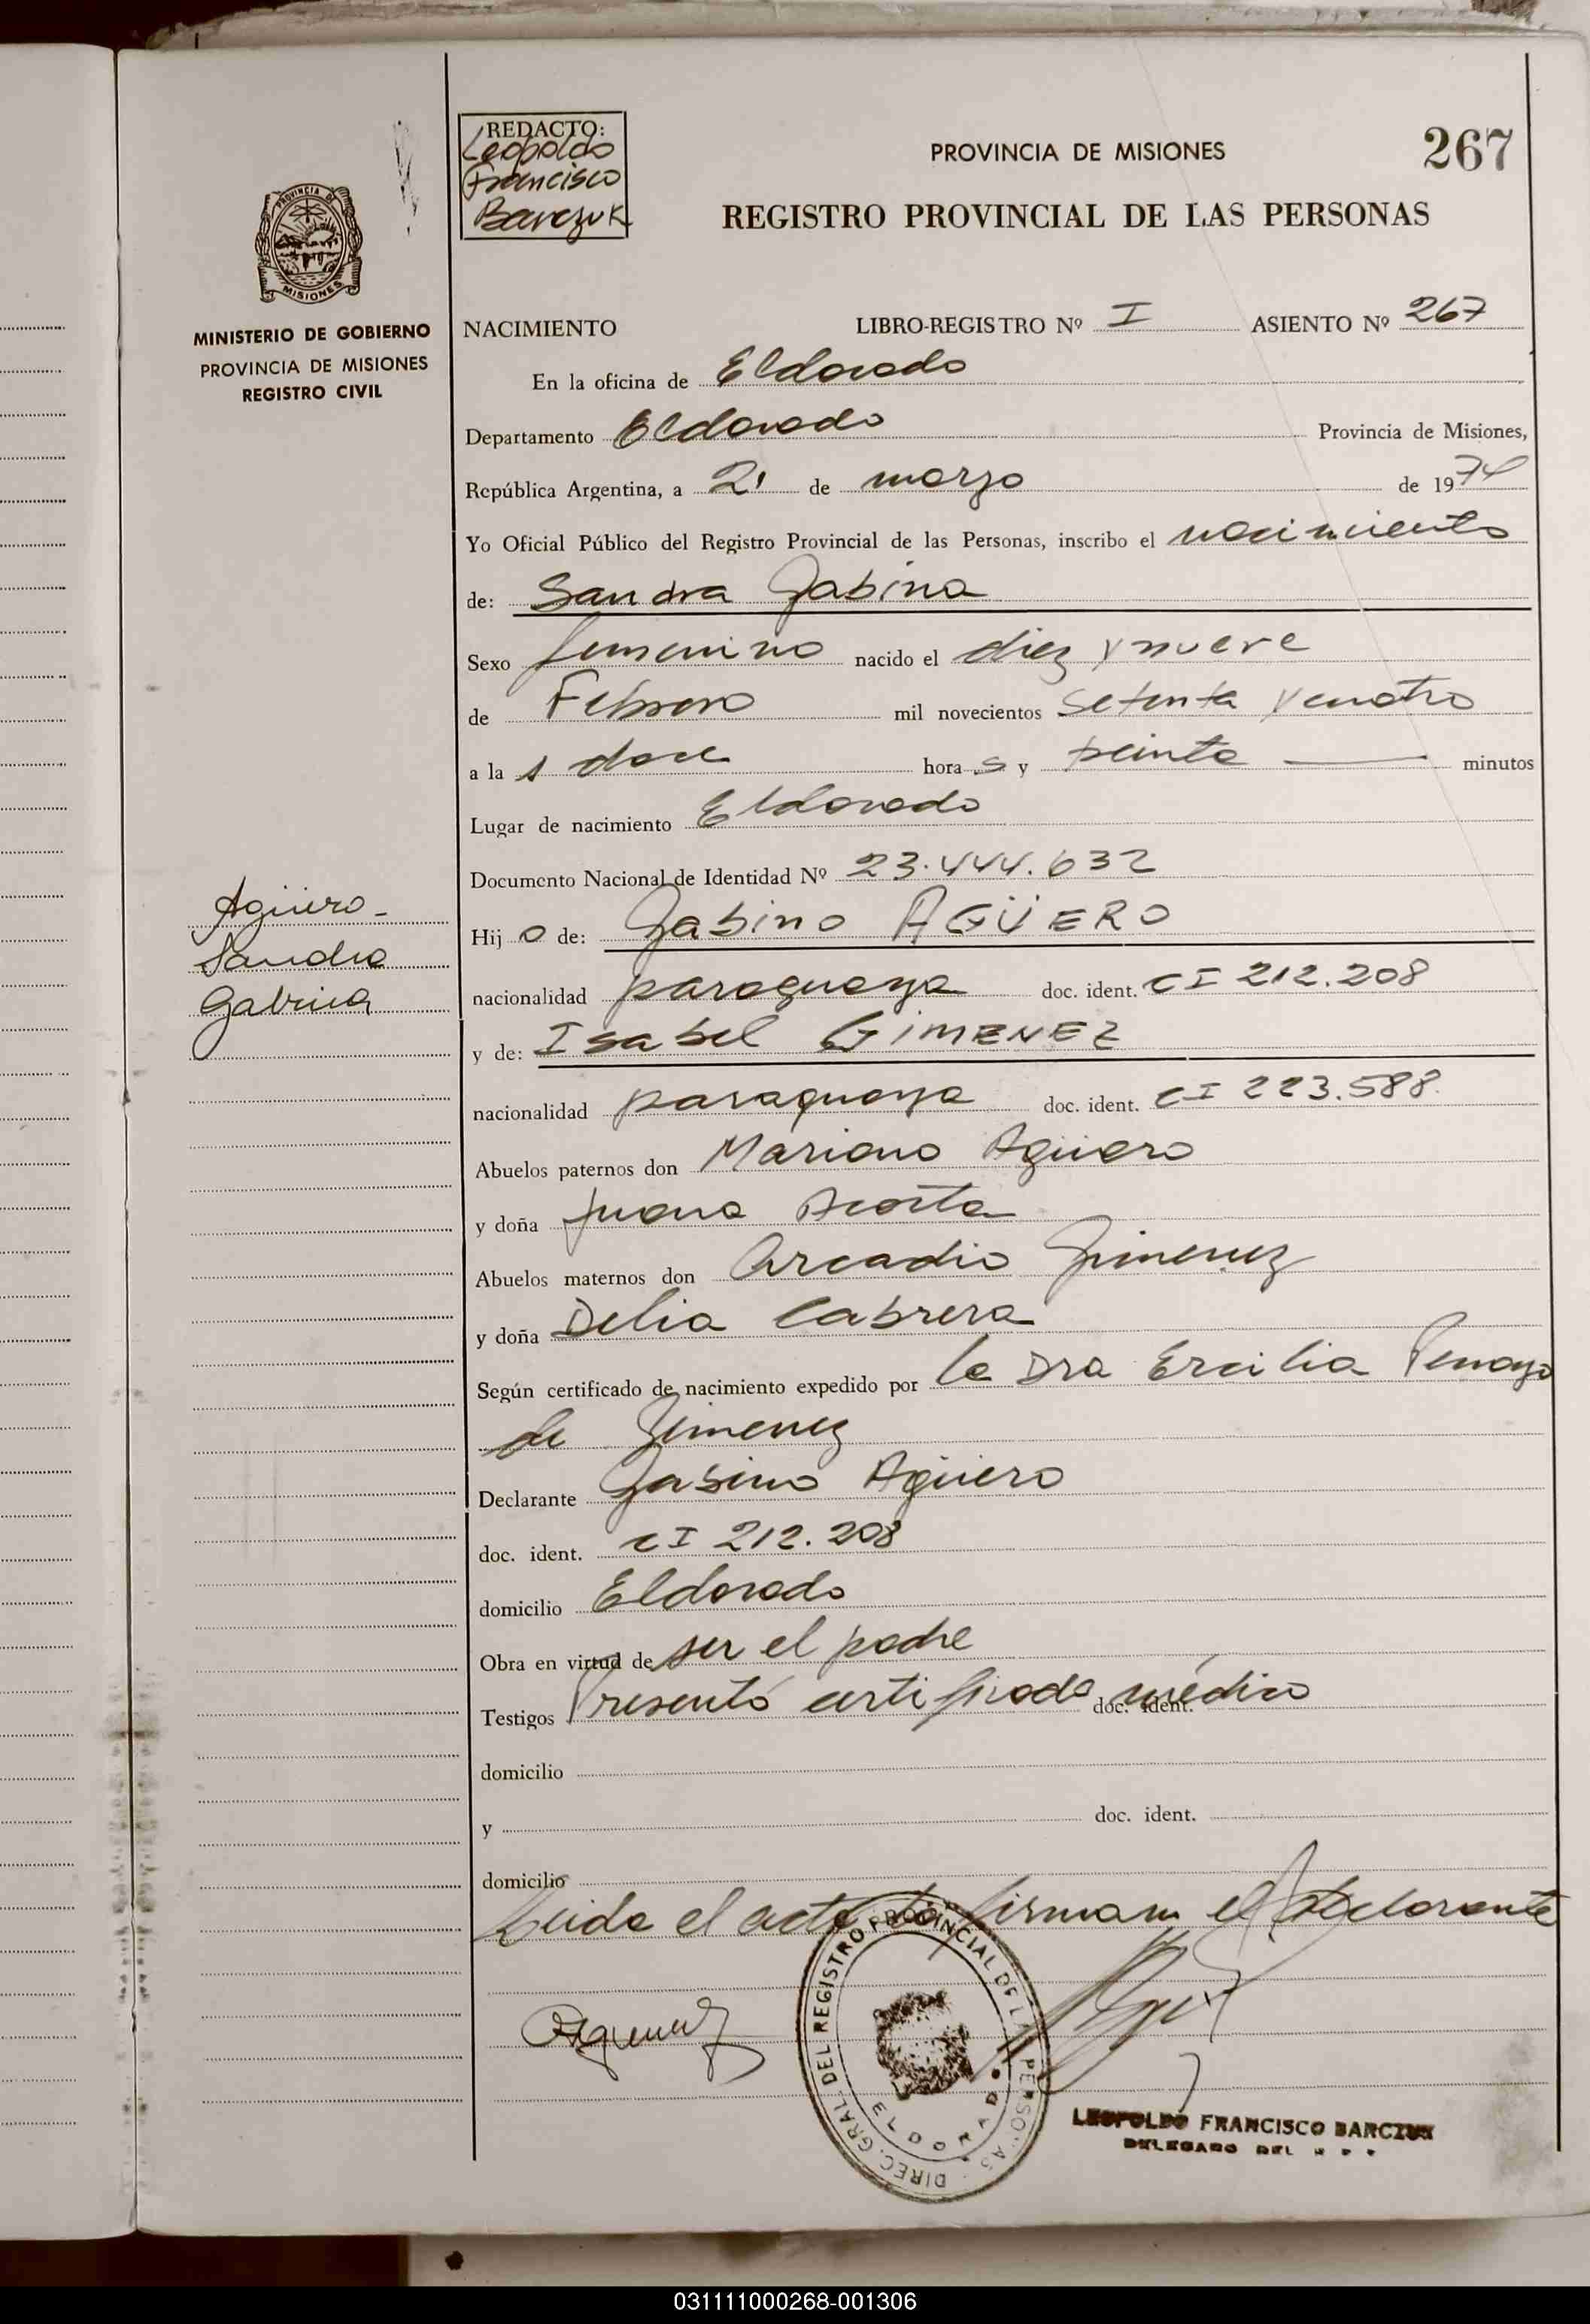 REDACTO:
Leopoldo
Francisco
Barczuk
PROVINCIA DE MISIONES
267
REGISTRO PROVINCIAL DE LAS PERSONAS
PROVINCIA DE
MISIONES
MINISTERIO DE GOBIERNO
PROVINCIA DE MISIONES
REGISTRO CIVIL
NACIMIENTO LIBRO-REGISTRO Nº I ASIENTO Nº 267
En la oficina de Eldorado
Departamento Eldorado Provincia de Misiones,
República Argentina, a 21 de marzo de 1974
Yo Oficial Público del Registro Provincial de las Personas, inscribo el nacimiento
de: Sandra Gabina
Sexo femenino nacido el diez y nueve
de Febrero mil novecientos setenta y cuatro
a las doce horas y treinta minutos
Lugar de nacimiento Eldorado
Documento Nacional de Identidad Nº 23.444.632
Agüero-
Sandra
Gabina
Hijo de: Gabino AGÜERO
nacionalidad paraguaya doc. ident. CI 212.208
y de: Isabel GIMENEZ
nacionalidad paraguaya doc. ident. CI 223.588
Abuelos paternos don Mariano Agüero
y doña Juana Acosta
Abuelos maternos don Arcadio Gimenez
y doña Delia Cabrera
Según certificado de nacimiento expedido por la Dra Ercilia Penayo
de Gimenez
Declarante Gabino Agüero
doc. ident. CI 212.208
domicilio Eldorado
Obra en virtud de ser el padre
Testigos Presentó certificado doc. ident. médico
domicilio
y doc. ident.
domicilio
Leida el acta la firman el declarante
DIREC. GRAL. DEL REGISTRO PROVINCIAL DE LAS PERSONAS
ELDORADO
LEOPOLDO FRANCISCO BARCZUK
DELEGADO DEL
031111000268-001306